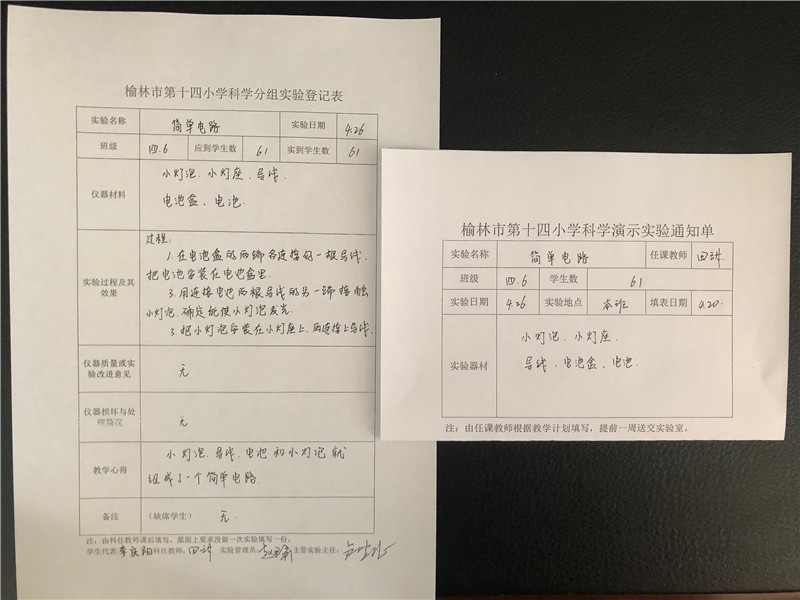 榆林市第十四小学科学分组实验登记表
实验名称 简单电路 实验日期 4.26
班级 四.6 应到学生数 61 实到学生数 61
仪器材料
小灯泡、小灯座、导线.
电池盒、电池.
实验过程及其效果
过程:
1.在电池盒的两端各连接好一根导线,
把电池安装在电池盒里.
3.用连接电池两根导线的另一端接触
小灯泡,确定能使小灯泡发光.
3.把小灯泡安装在小灯座上,再连接上导线.
仪器质量或实验改进意见 无
仪器损坏与处理情况 无
教学心得
小灯泡、导线、电池和小灯泡就
组成了一个简单电路.
备注 (缺席学生) 无.
注:由科任教师课后填写,原则上要求没做一次实验填写一份。
学生代表: 科任教师: 田 实验管理员: 主管实验主任:
榆林市第十四小学科学演示实验通知单
实验名称 简单电路 任课教师 田
班级 四.6 学生数 61
实验日期 4.26 实验地点 本班 填表日期 4.20.
实验器材
小灯泡、小灯座.
导线、电池盒、电池.
注:由任课教师根据教学计划填写,提前一周送交实验室。